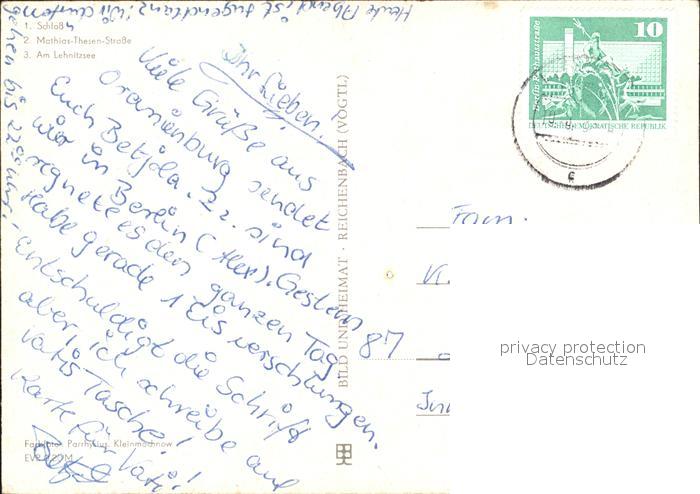 1. Schloß
2. Mathias-Thesen-Straße
3. Am Lehnitzsee
Heute Abend ist Jugendtanz. Wir dürfen
gehen bis 22.00 Uhr.
Ihr Lieben!
Viele Grüße aus
Oranienburg sendet
Euch Z. Z. sind
wir in Berlin (Alex). Gestern
regnete es den ganzen Tag.
Habe gerade 1 Eis verschlungen.
Entschuldigt die Schrift
aber ich schreibe auf
Vatis Tasche!
Karte für Vati!
BILD UND HEIMAT · REICHENBACH (VOGTL)
Berlin, Rathausstraße
10
DEUTSCHE DEMOKRATISCHE REPUBLIK
c
Fam.
87
privacy protection
Datenschutz
Farbfoto: Parrhysius, Kleinmachnow
EVP 0,20 M